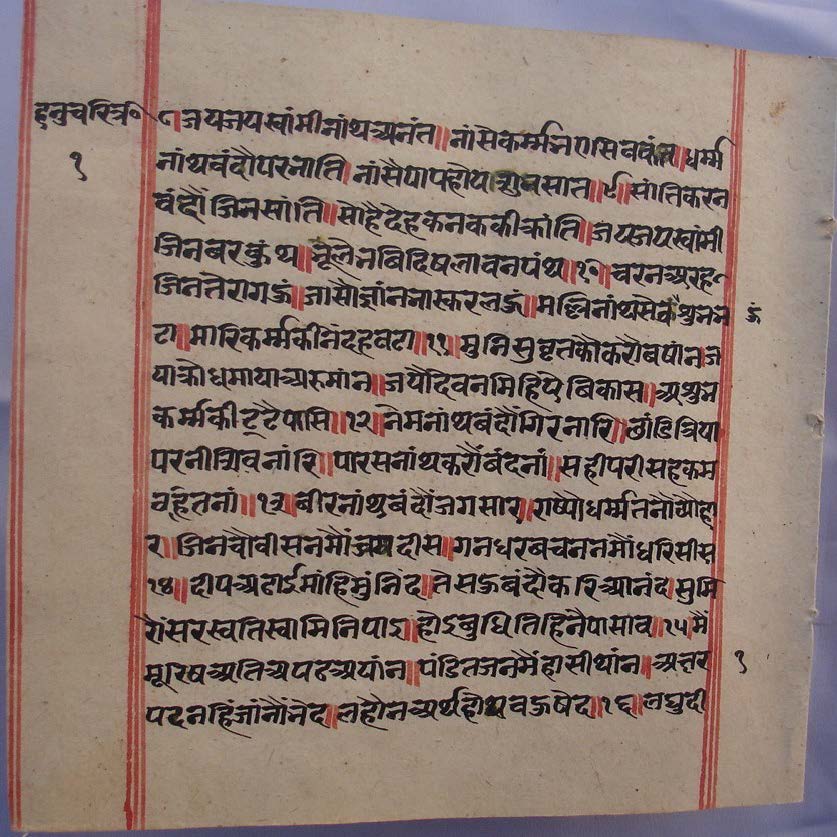 हनुचरित्र०
१
८॥जयजयस्वांमीनांथअनंत॥नांसेकर्म्मनरासिबवंत॥धर्म्म
नांथबंदौपरनाति॥नांसैपापहोय॥९॥सांतिकरन
बंदौंजिनसांति॥सोहैदेहकनककीक्रांति॥जयजयस्वांमी
जिनबरकुंथ॥मूलेनबिदिषलावनपंथ॥१०॥चरनअरह
जितनेरागऊं॥जासौज्ञांननास्करलऊं॥मल्लिनांथसेवै
ऊं
टा॥मारिकर्म्मकीनंदहवटा॥११॥मुनिसुवृतकौकरौबषांन॥ज
याक्रोधमायाअरुमांन॥जयैदिवनमिहिये बिकास॥अशुन
कर्म्मकीटूटैफासि॥१२॥नेमनांथबंदौंगिरनारि॥छांडित्रिया
परनीत्रिवनांरि॥पारसनांथकरौंबंदनां॥सहीपरीसहकम
वहंतनां॥१३॥बीरनांथबंदौंजगसार॥राष्यौधर्म्मतनौंव्यौहा
र॥जिनचौवीसनमौंजगदीस॥गनधरबचननमौंधरिसीस
१४॥दीपअढाईमांहिमुंनिंद॥तेसऊबंदौकरिआनंद॥सुमि
रौंसरस्वतिस्वामिनिपाइ॥होइबुधितिहिनैपासाव॥१५॥मैं
मूरिषअतिअपढअयांन॥पंडितजनमैंहासीथांन॥अक्षर
१
पदनहिंजांनौंनेद॥लहौनअर्थहोयबऊषेद॥१६॥लघुदी